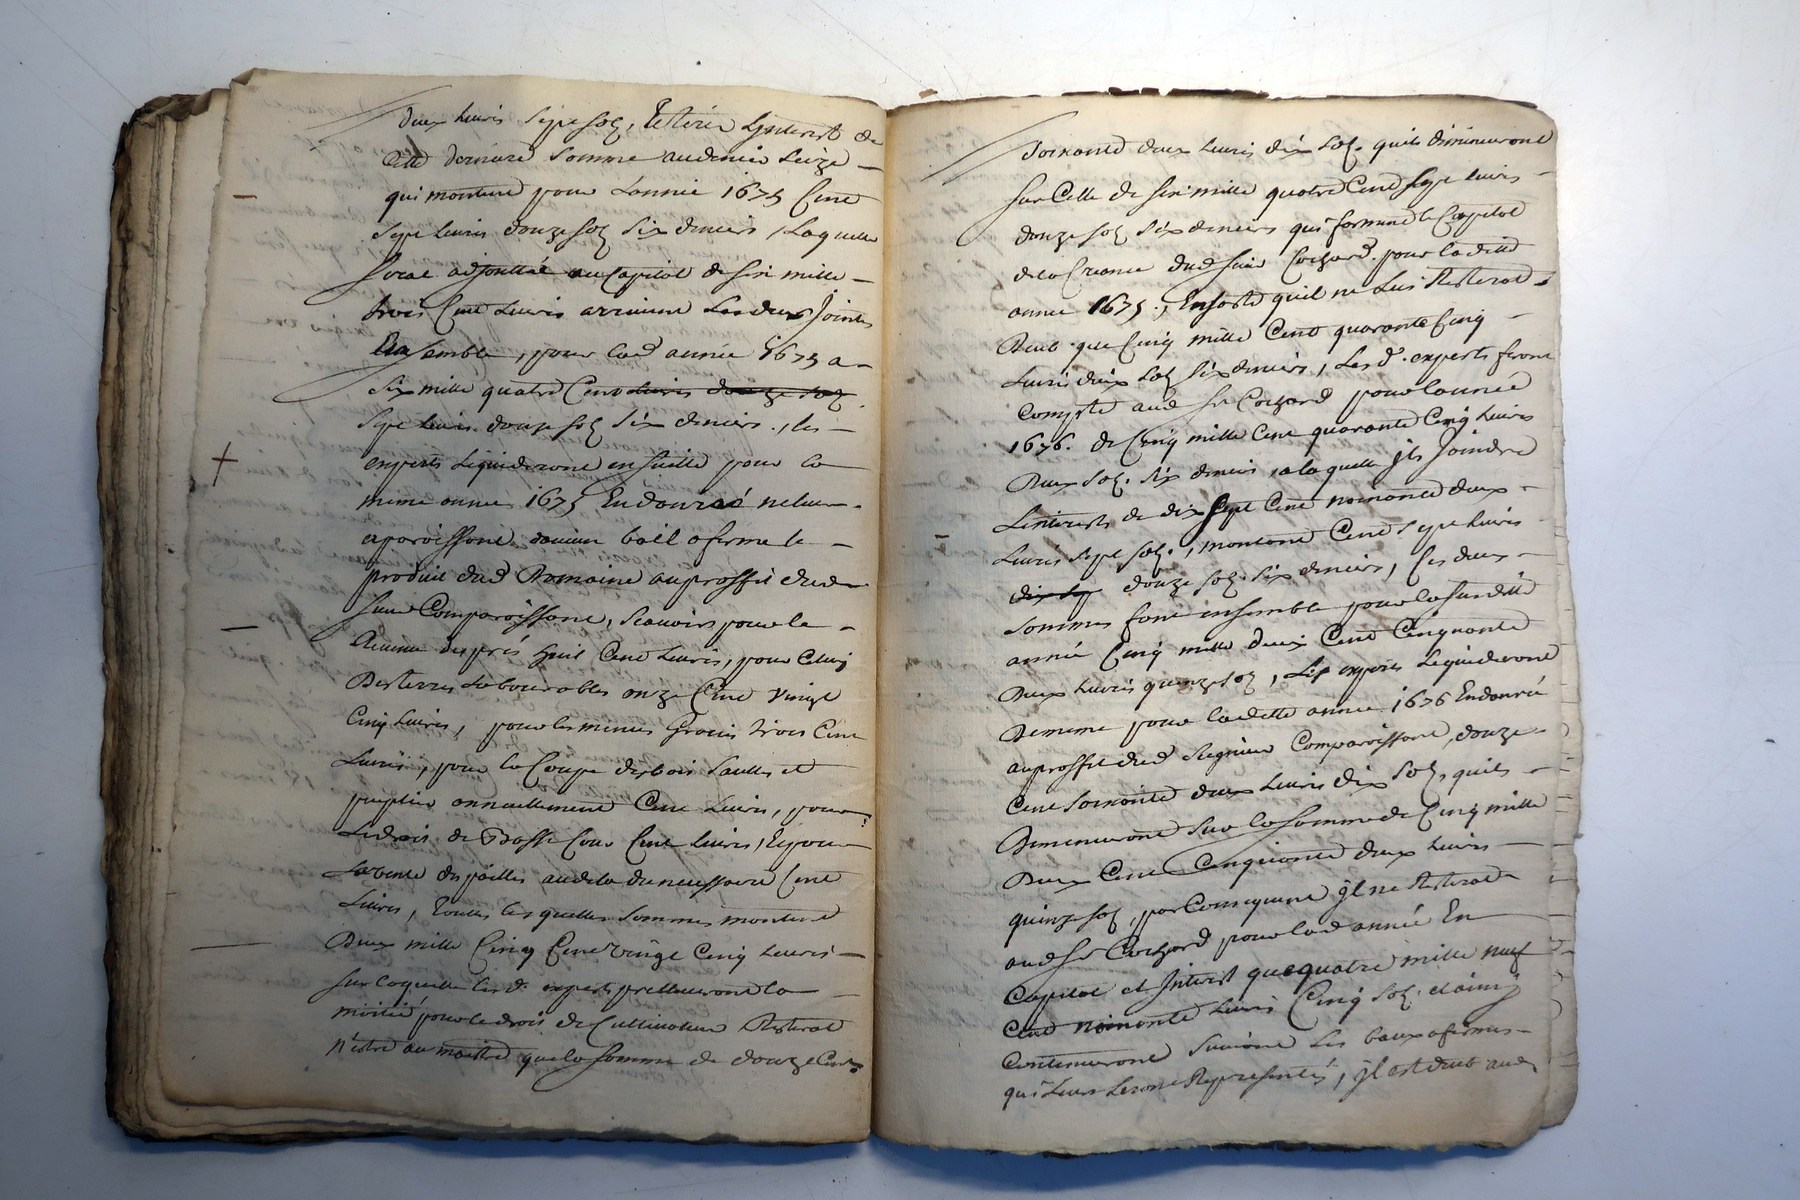 deux livres sept solz, Et tirer L'jnterest de
Cette derniere somme au denier seize
qui montent pour L'année 1675 Cent
sept livres douze solz six deniers, Laquelle
sera adjouttée au Capital de six mille
trois Cent Livres arrivent Les deux Jointes
Ensemble, pour lad année 1675 a
six mille quatre Cent
sept Livres douze solz six deniers, les
experts Liquideront ensuitte pour la
meme année 1675 Endouzié
aparoissant d'aucun bail a ferme le
produit dud Domaine au proffit dud
sieur Comparoissant, scavoirs pour le
Revenu des prés huit Cent Livres, pour Celuy
Des terres Labourables onze Cent vingt
Cinq Livres, pour les menus Grains trois Cent
Livres, pour la Coupe des bois saulles et
peuplier annuellement Cent Livres, pour
Ledrois de Basse Cour Cent Livres, Et pour
La vente des pailles audela du necessaire Cent
Livres, toutes lesquelles sommes montent
Deux mille Cinq Cent vingt Cinq Livres
sur laquelle les d. experts prelleveront la
moitié pour le drois de Cultivateur Resterat
n'estre au maitre que la somme de douze Cent
soixante deux Livres dix solz. quils diminueront
sur Celle de six mille quatre Cent sept Livres
douze solz six deniers qui forment le Capital
de la Creance dud sieur Cochard pour laditte
année 1675, Ensorte quil ne Lui Resterat
Deub que Cinq mille Cent quarante Cinq
Livres deux solz six deniers, Les d. experts feront
Compte aud sr Cochard pour l'année
1676. de Cinq mille Cent quarante Cinq Livres
Deux solz. six deniers, a laquelle jls Joindre
L'interests de dix sept Cent noinante deux
Livres sept solz., montant Cent sept Livres
douze solz six deniers, Ces deux
sommes font ensemble pour la susditte
année Cinq mille deux Cent Cinquante
Deux Livres quinze solz, Les experts Liquideront
De meme pour laditte année 1676 Endouzié
au proffit dud seigneur Comparoissant, douze
Cent soixante deux Livres dix solz, quils
Diminueront sur la somme de Cinq mille
Deux Cent Cinquante deux Livres
quinze solz, par Consequent jl ne Resterat
aud sr Cochard pour lad année En
Capital et Jnterest que quatre mille neuf
Cent noinante Livres Cinq solz. et ainsy
Continueront suivant les baux a fermes
qui Leurs seront Representés, jl est deub aud